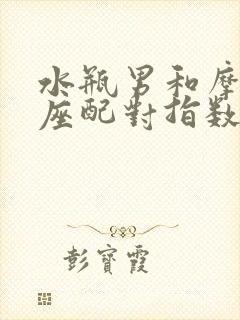 水瓶男和摩
座配對指數
彭寶霞